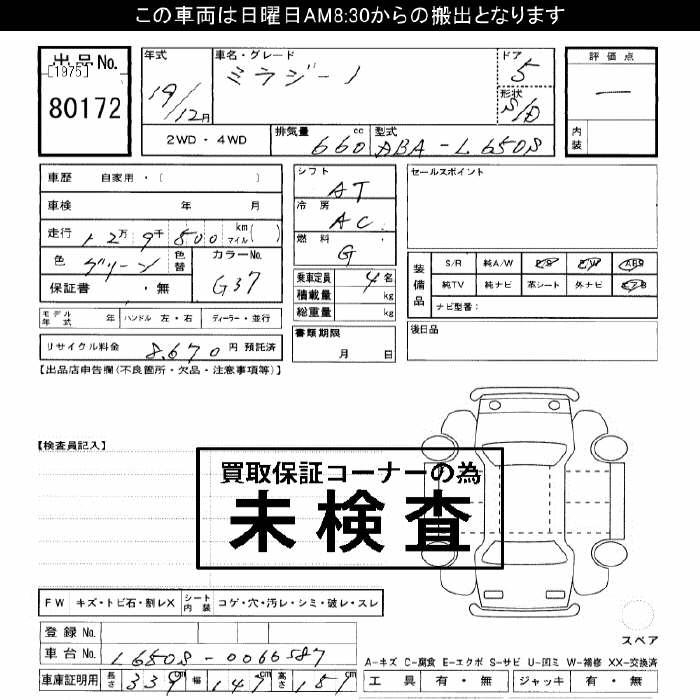 この車両は日曜日AM8:30からの搬出となります
出品No.
[1975]
80172
年式
19/12月
車名・グレード
ミラジーノ
ドア
5
形状
S/D
2WD・4WD
排気量 660cc
型式 ABA-L650S
評価点
―
内装
車歴 自家用・( )
車検 年 月
走行 12万9千800 km マイル( )
色 グリーン 色替
カラーNo. G37
保証書 ・無
モデル年式 年
ハンドル 左・右
ディーラー・並行
リサイクル料金 8,670円 預託済
シフト
AT
冷房
AC
燃料
G
乗車定員 4名
積載量 kg
総重量 kg
書類期限
月 日
セールスポイント
装備品
S/R 純A/W P/S P/W ABS
純TV 純ナビ 革シート 外ナビ エアB
ナビ型番:
後日品
【出品店申告欄(不良箇所・欠品・注意事項等)】
【検査員記入】
買取保証コーナーの為
未検査
FW キズ・トビ石・割レX
シート内装 コゲ・穴・汚レ・シミ・破レ・スレ
登録No.
車台No. L650S-0066587
車庫証明用 長さ 339cm 幅 147cm 高さ 151cm
スペア
A-キズ C-腐食 E-エクボ S-サビ U-凹ミ W-補修 XX-交換済
工具 有・無 ジャッキ 有・無